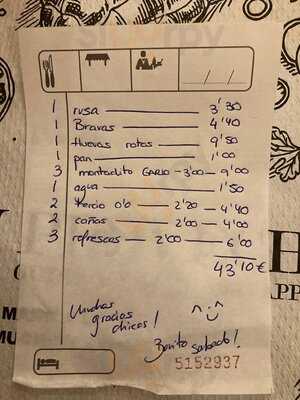 1 rusa 3'30
1 Bravas 4'40
1 Huevos rotos 9'50
1 pan 1'00
3 montadito GARIO - 3'00 - 9'00
1 agua 1'50
2 tercio 0'0 - 2'20 - 4'40
2 cañas - 2'00 - 4'00
3 refrescos - 2'00 - 6'00
43'10€
Muchas
gracias
chicos!
Bonito sabado!
5152937